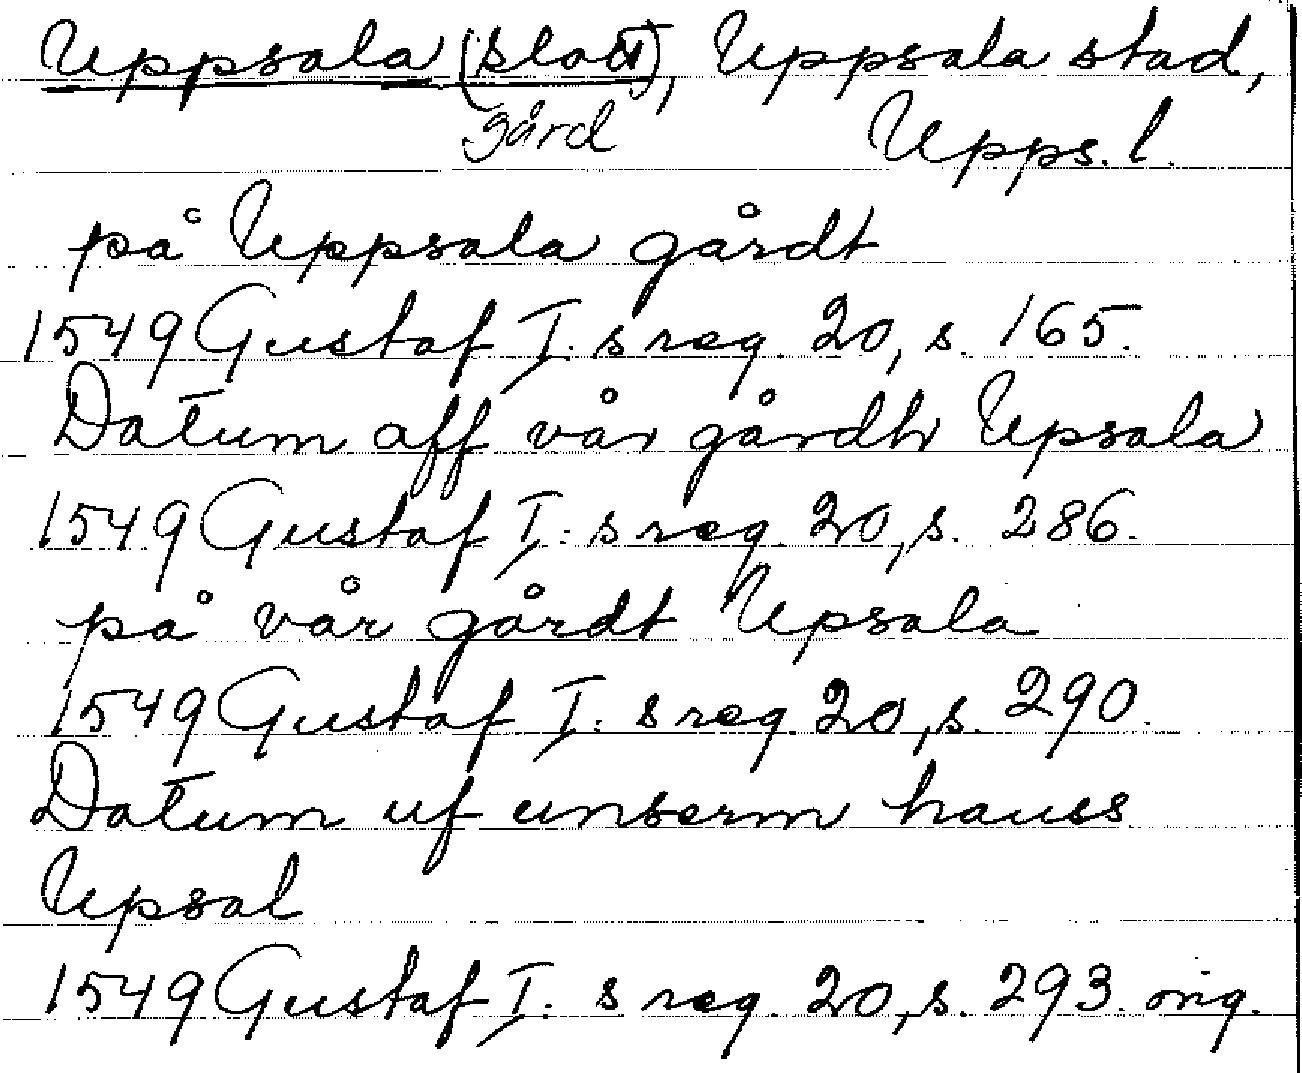 Uppsala (slott), Uppsala stad,
gård Upps. l.
på Uppsala gårdt
1549 Gustaf I:s reg. 20, s. 165.
Datum aff vår gårdh Upsala
1549 Gustaf I:s reg. 20, s. 286.
på vår gårdt Upsala
1549 Gustaf I:s reg. 20, s. 290.
Datum uf unserm hauss
Upsal
1549 Gustaf I:s reg. 20, s. 293. orig.